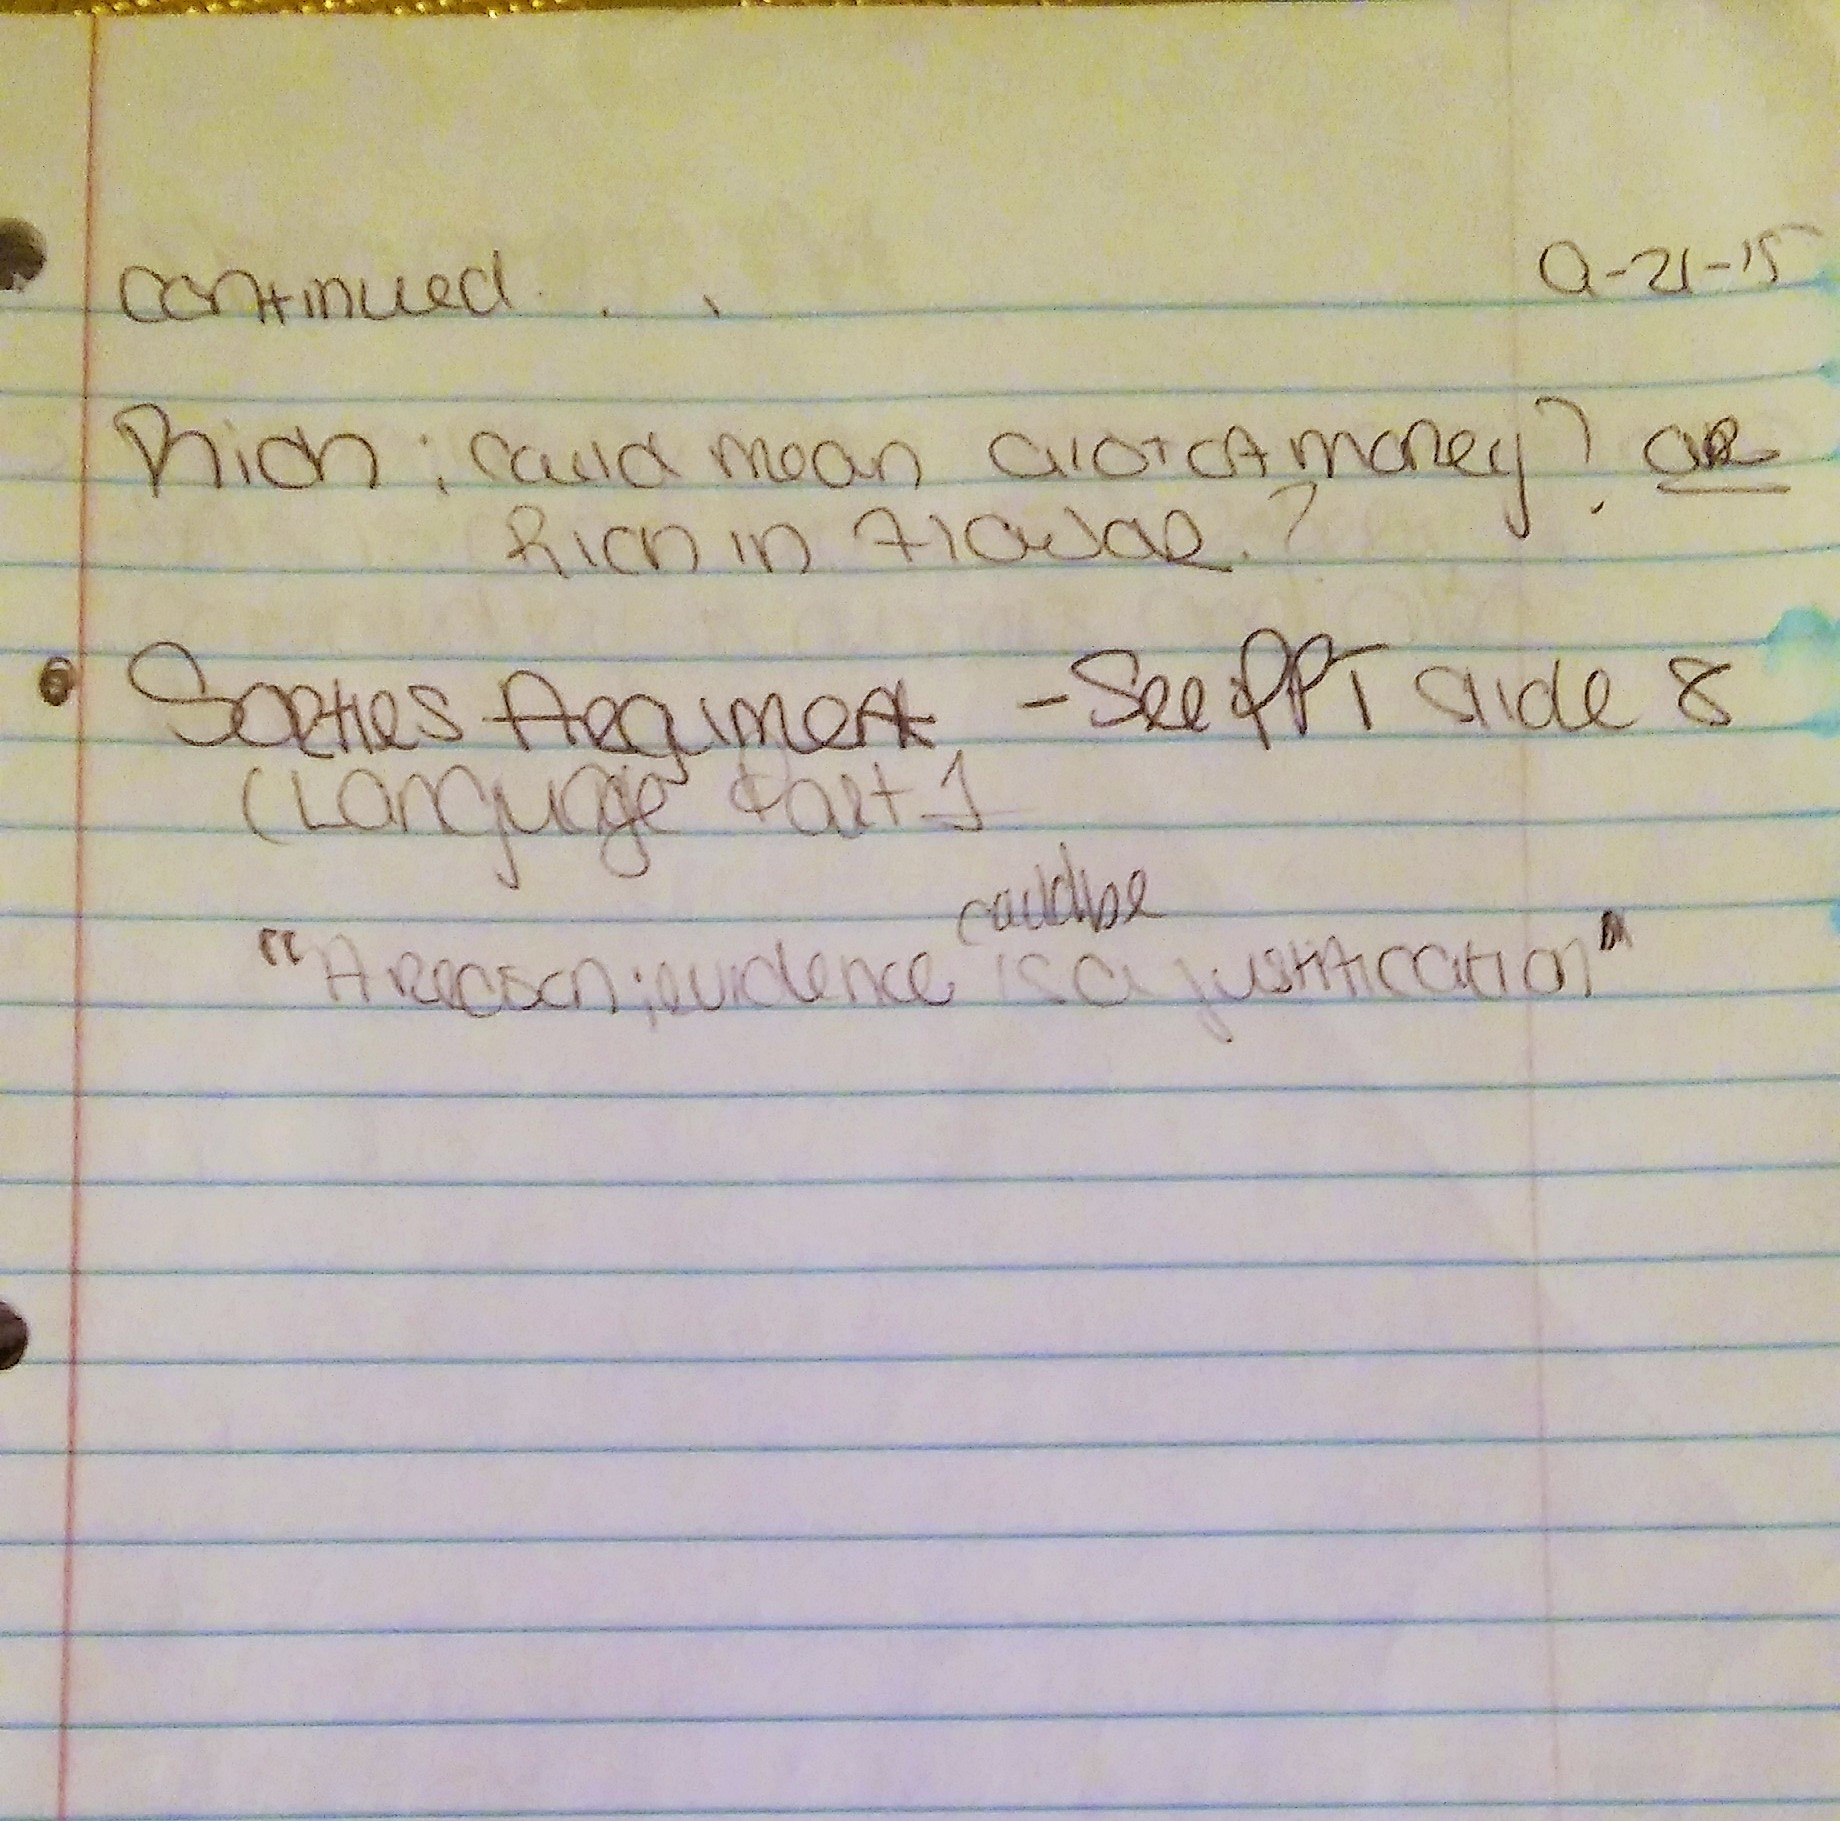 continued . . .
9-21-15
Rich : could mean alot of money? OR
Rich in flavor.?
Sorties Argument - See PPT slide 8
(Language Part 1
could be
"A Reason; evidence is a justification"